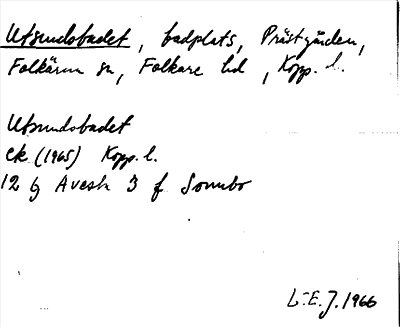 Utsundsbadet, badplats, Prästgården,
Folkärna sn, Folkare hd, Kopp. l.
Utsundsbadet
ek (1965) Kopp. l.
12 G Avesta 3 f Sonnbo
L.E.J. 1966